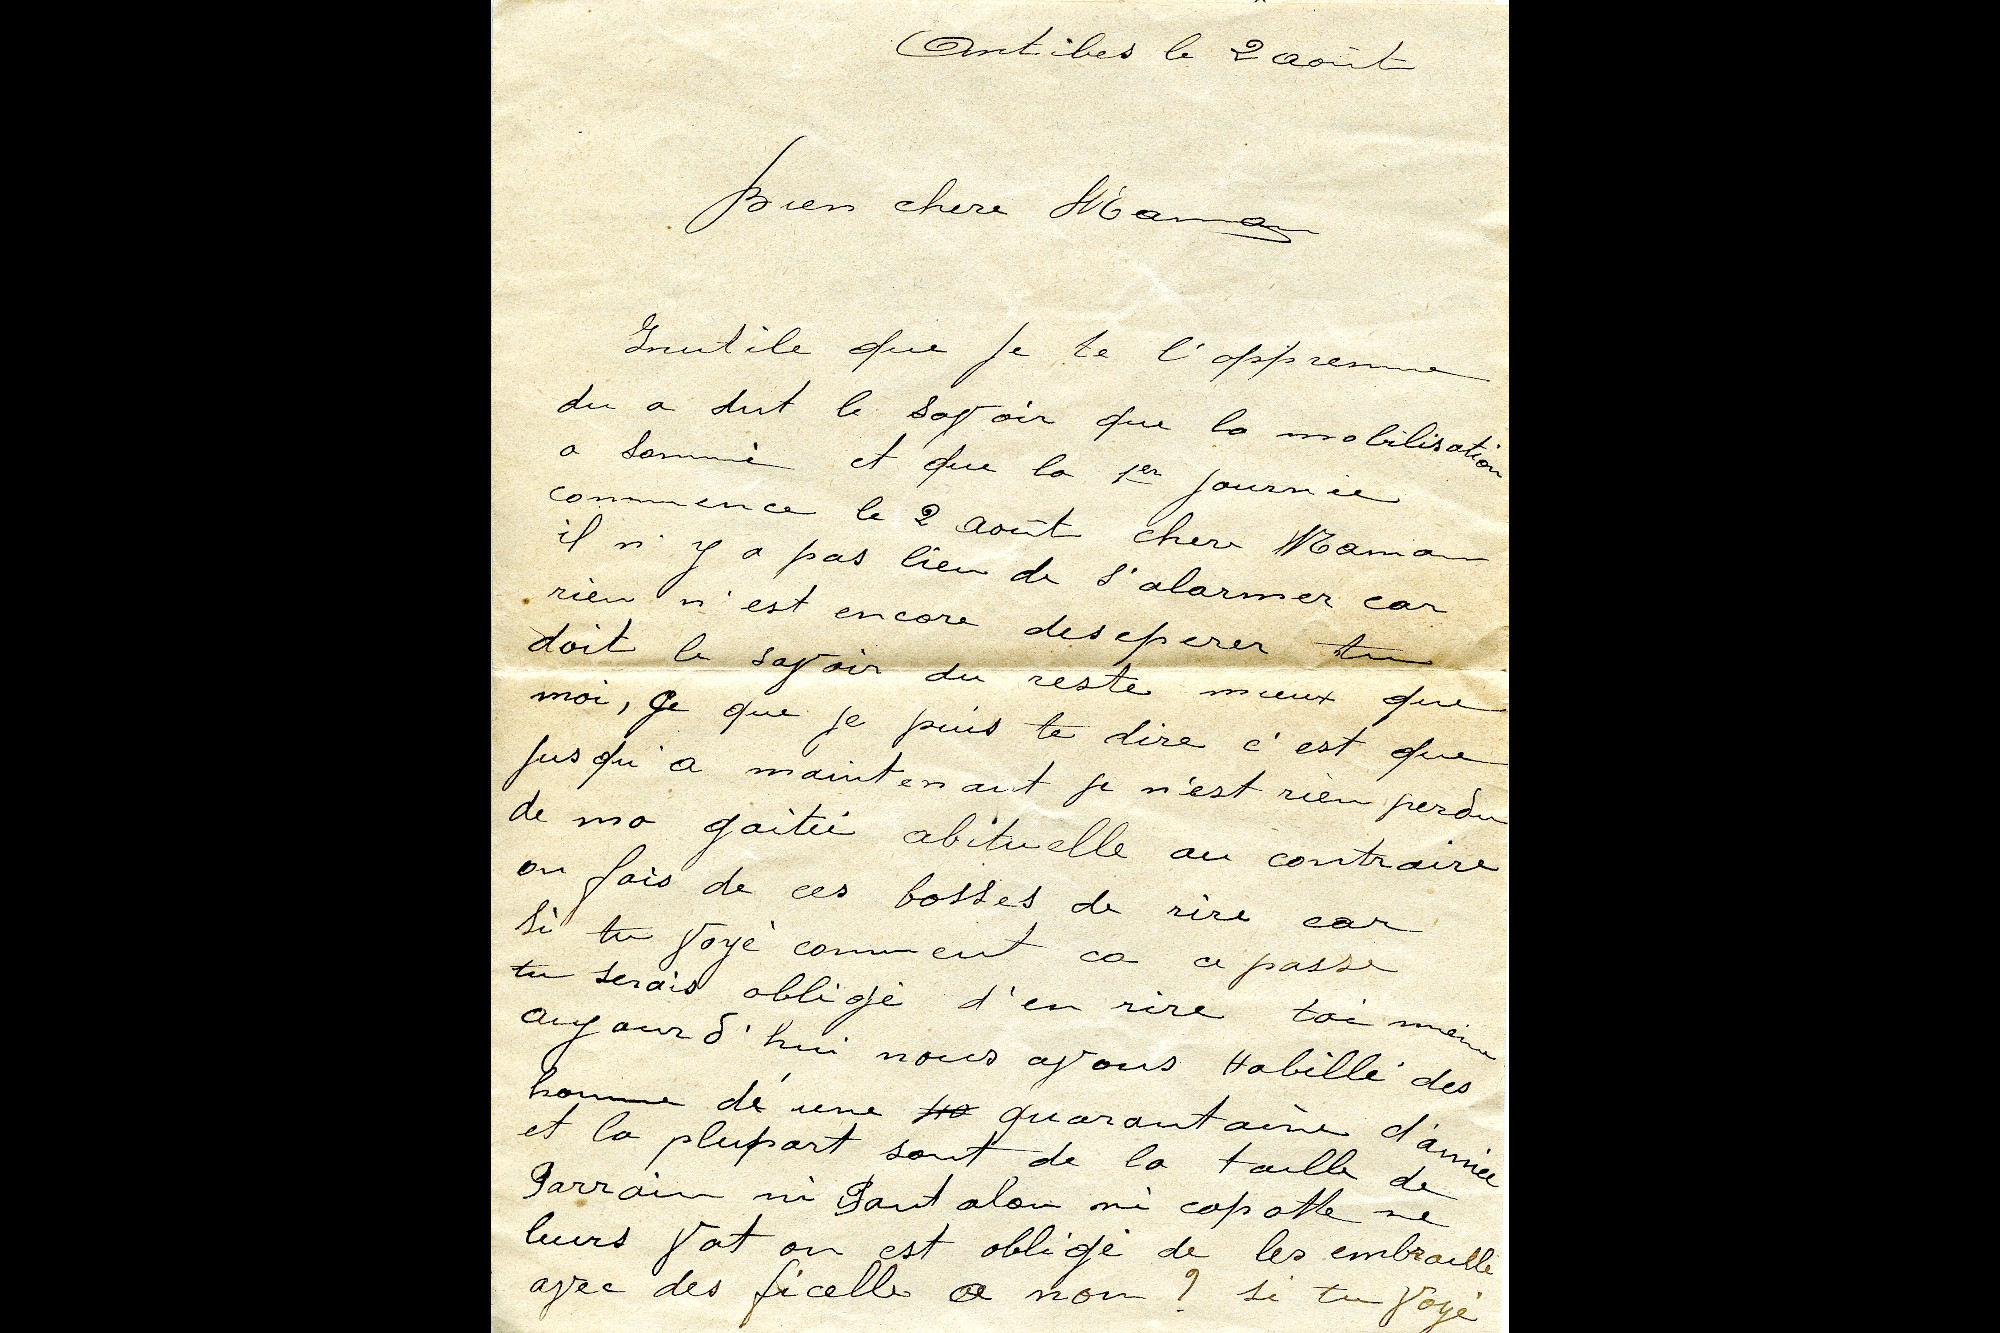 Antibes le 2 août
Bien chere Maman
Inutile que je te l'apprenne
du a dut le savoir que la mobilisation
a sonnè et que la 1er journée
commence le 2 Août chere Maman
il n'y a pas lieu de s'alarmer car
rien n'est encore deseperer tu
doit le savoir du reste mieux que
moi, Ce que je puis te dire c'est que
jusqu'a maintenant je n'est rien perdu
de ma gaitée abituelle au contraire
on fais de ces bosses de rire car
si tu voyé comment ca ce passe
tu serais obligé d'en rire toi même
aujourd'hui nous avons Habillé des
homme dé une quarantaine d'année
et la plupart sont de la taille de
Parrain ni Pantalon ni capotte ne
leurs vat on est obligé de les embraillé
avec des ficelle a non ? si tu voyé